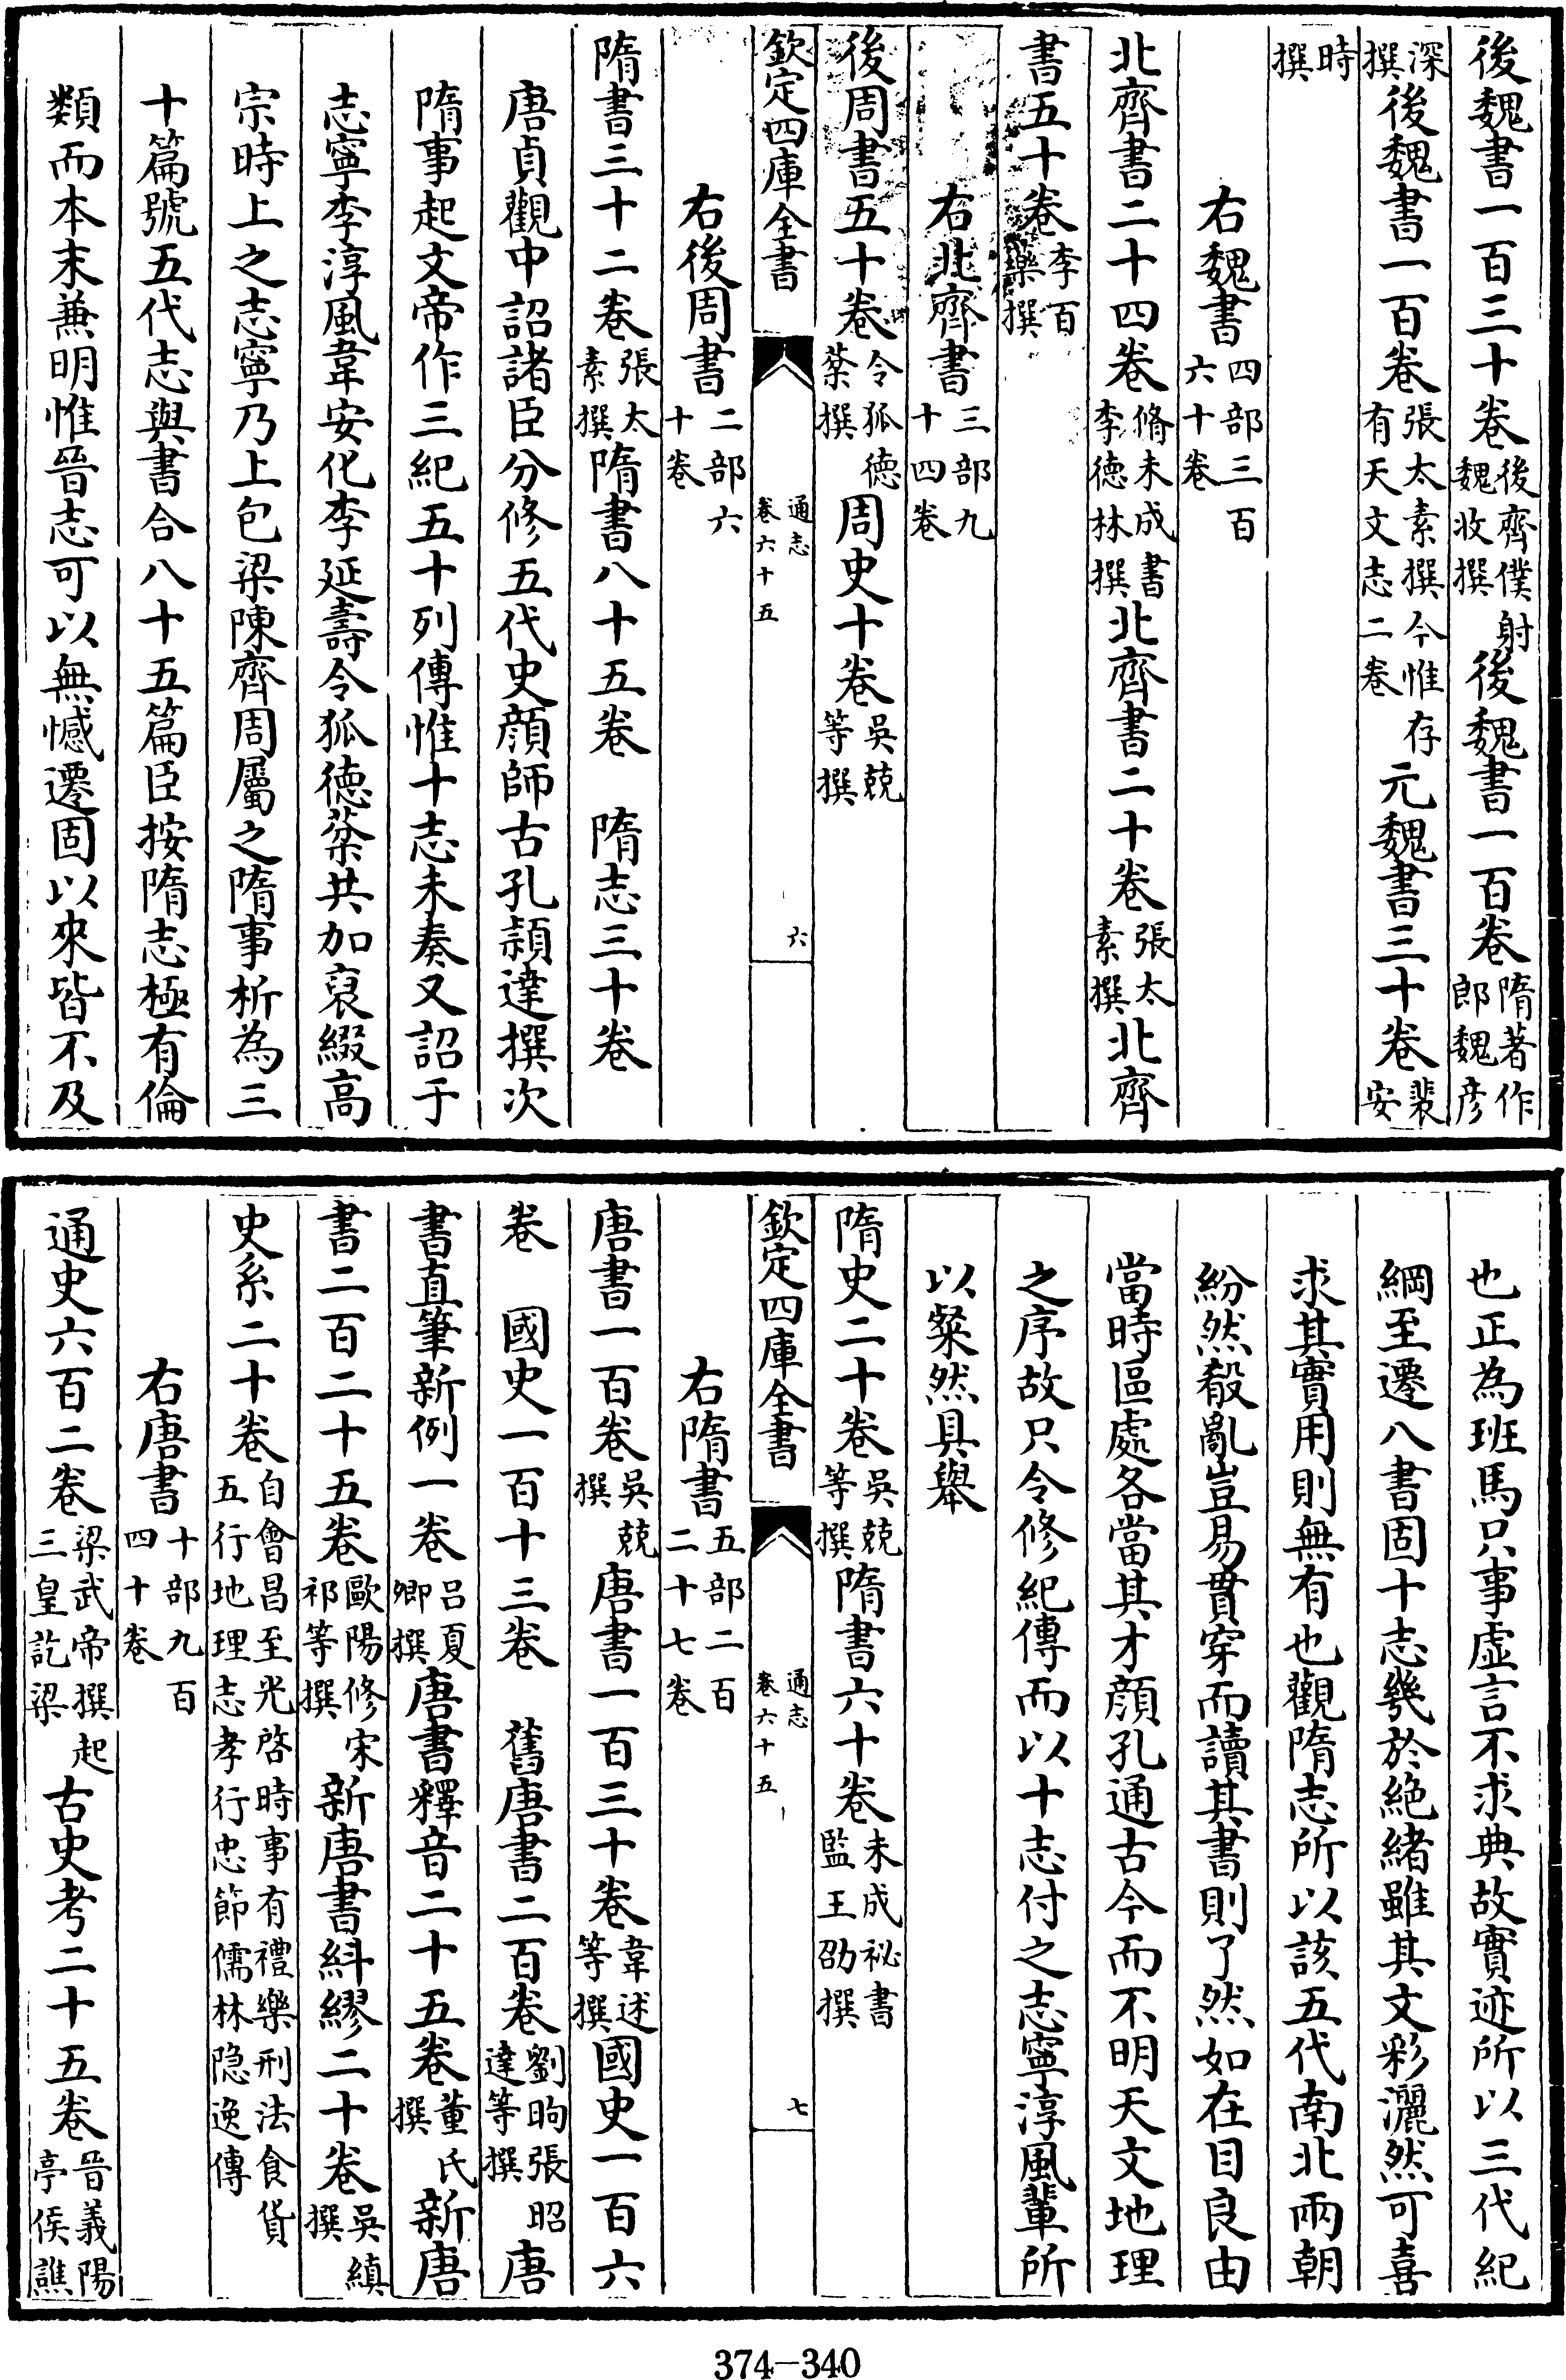 後魏書一百三十卷後齊僕射魏收撰後魏書一百卷隋著作郎魏彦
深撰後魏書一百卷張太素撰今惟存有天文志二卷元魏書三十卷裴安
時撰
右魏書四部三百六十卷
北齊書二十四卷脩未成書李德林撰北齊書二十卷張太素撰北齊
書五十卷李百藥撰
右北齊書三部九十四卷
後周書五十卷令狐德棻撰周史十卷吳兢等撰
欽定四庫全書 通志卷六十五 六
右後周書二部六十卷
隋書三十二卷張太素撰隋書八十五卷 隋志三十卷
唐貞觀中詔諸臣分修五代史顔師古孔穎達撰次
隋事起文帝作三紀五十列傳惟十志未奏又詔于
志寧李淳風韋安化李延壽令狐德棻共加裒綴高
宗時上之志寧乃上包梁陳齊周屬之隋事析為三
十篇號五代志與書合八十五篇臣按隋志極有倫
類而本末兼明惟晉志可以無憾遷固以來皆不及
也正為班馬只事虛言不求典故實迹所以三代紀
綱至遷八書固十志幾於絶緒雖其文彩灑然可喜
求其實用則無有也觀隋志所以該五代南北兩朝
紛然殽亂豈易貫穿而讀其書則了然如在目良由
當時區處各當其才顔孔通古今而不明天文地理
之序故只令修紀傳而以十志付之志寧淳風輩所
以粲然具舉
隋史二十卷吳兢等撰隋書六十卷未成祕書監王劭撰
欽定四庫全書 通志卷六十五 七
右隋書五部二百二十七卷
唐書一百卷吳兢撰唐書一百三十卷韋述等撰國史一百六
卷 國史一百十三卷 舊唐書二百卷劉昫張昭達等撰唐
書直筆新例一卷吕夏卿撰唐書釋音二十五卷董氏撰新唐
書二百二十五卷歐陽修宋祁等撰新唐書糾繆二十卷吳縝撰
史系二十卷自會昌至光啓時事有禮樂刑法食貨五行地理志孝行忠節儒林隐逸傳
右唐書十部九百四十卷
通史六百二卷梁武帝撰起三皇訖梁古史考二十五卷晉義陽亭侯譙
374-340